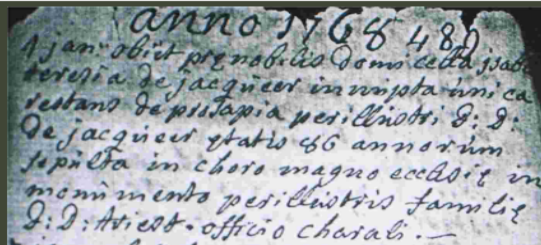 anno 1768 480
1 jan: obiit pręnobilis domicella jsab:
teresia de jacqueer innupta unica
restans de prosapia perillustri D: D:
de jacqueer ętatis 86 annorum
sepulta in choro magno ecclesię in
monumento perillustris familię
D: D: Ariest. officio chorali. —